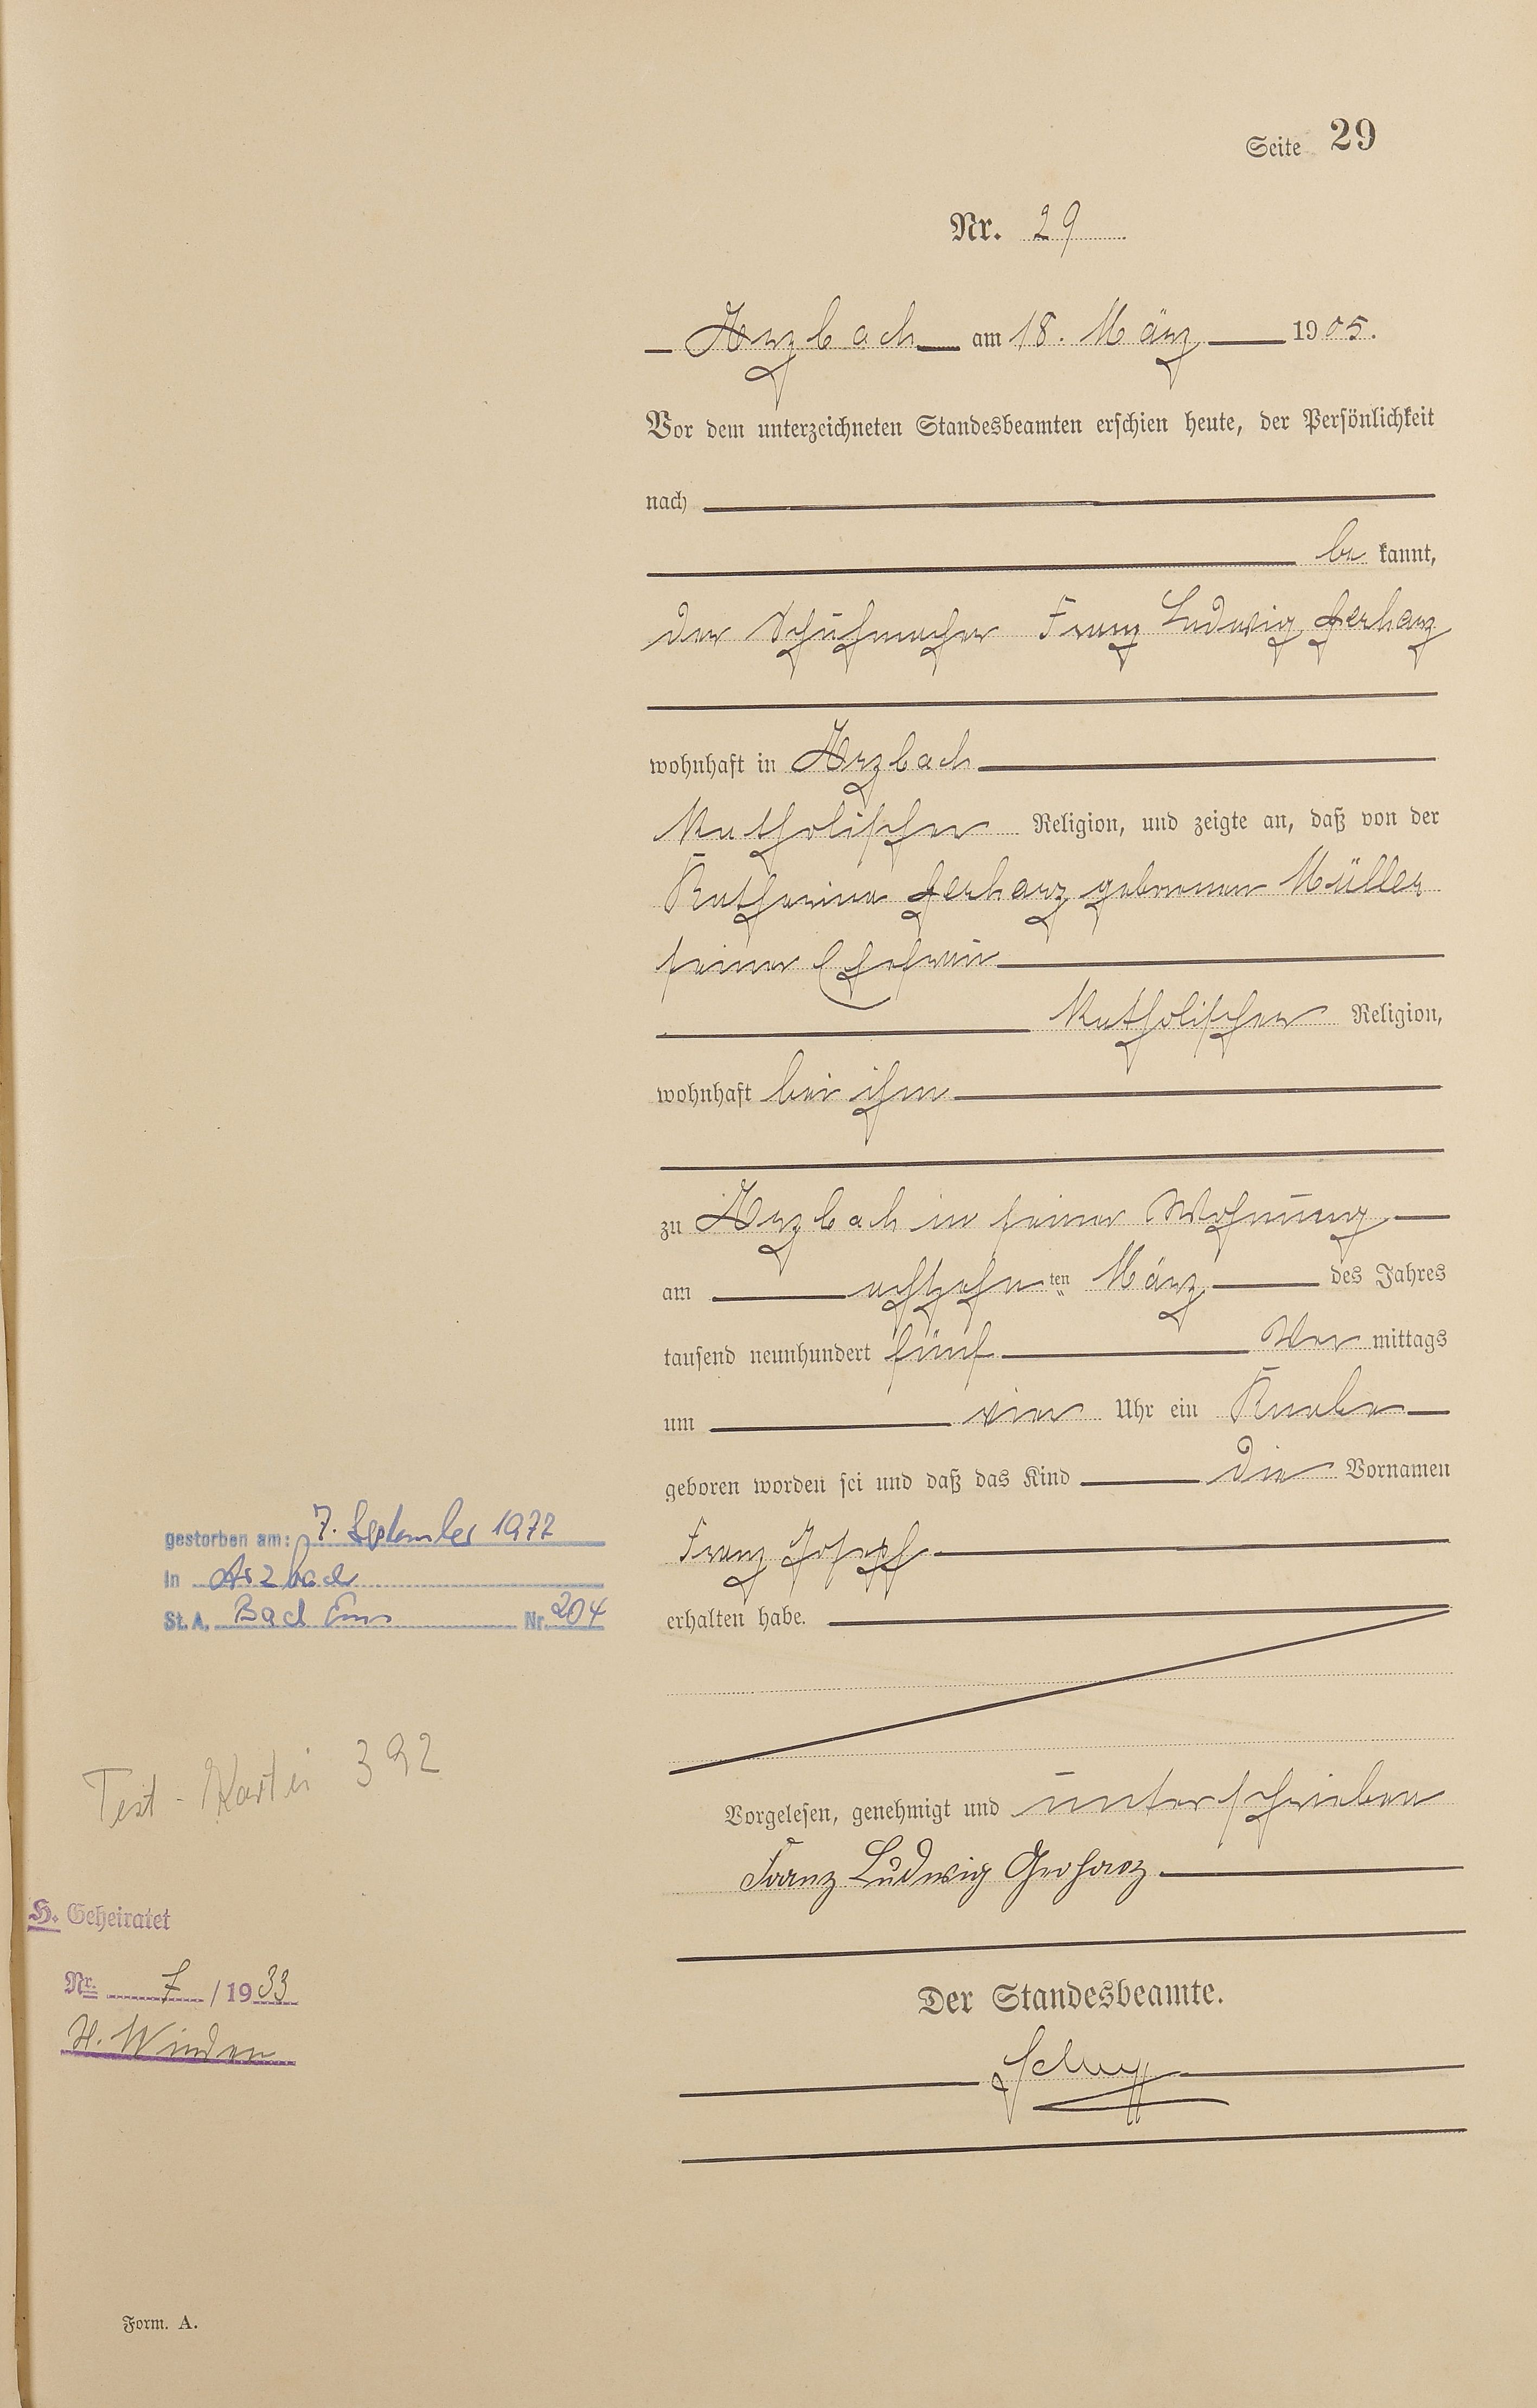 Seite 29
Nr. 29
Arzbach am 18. März 1905.
Vor dem unterzeichneten Standesbeamten erschien heute, der Persönlichkeit
nach
be kannt,
der Schuhmacher Franz Ludwig Gerharz
wohnhaft in Arzbach
katholischer Religion, und zeigte an, daß von der
Katharina Gerharz geborenen Müller
seiner Ehefrau
katholischer Religion,
wohnhaft bei ihm
zu Arzbach in seiner Wohnung
am achtzehnten März des Jahres
tausend neunhundert fünf Vor mittags
um vier Uhr ein Knabe
geboren worden sei und daß das Kind die Vornamen
Franz Joseph
erhalten habe.
Vorgelesen, genehmigt und unterschrieben
Franz Ludwig Gerharz
Der Standesbeamte.
gestorben am: 7. September 1977
in Arzbach
St. A. Bad Ems Nr. 204
Test-Kartei 392
H. Geheiratet
Nr. 7 / 1933
H. Winden
Form. A.